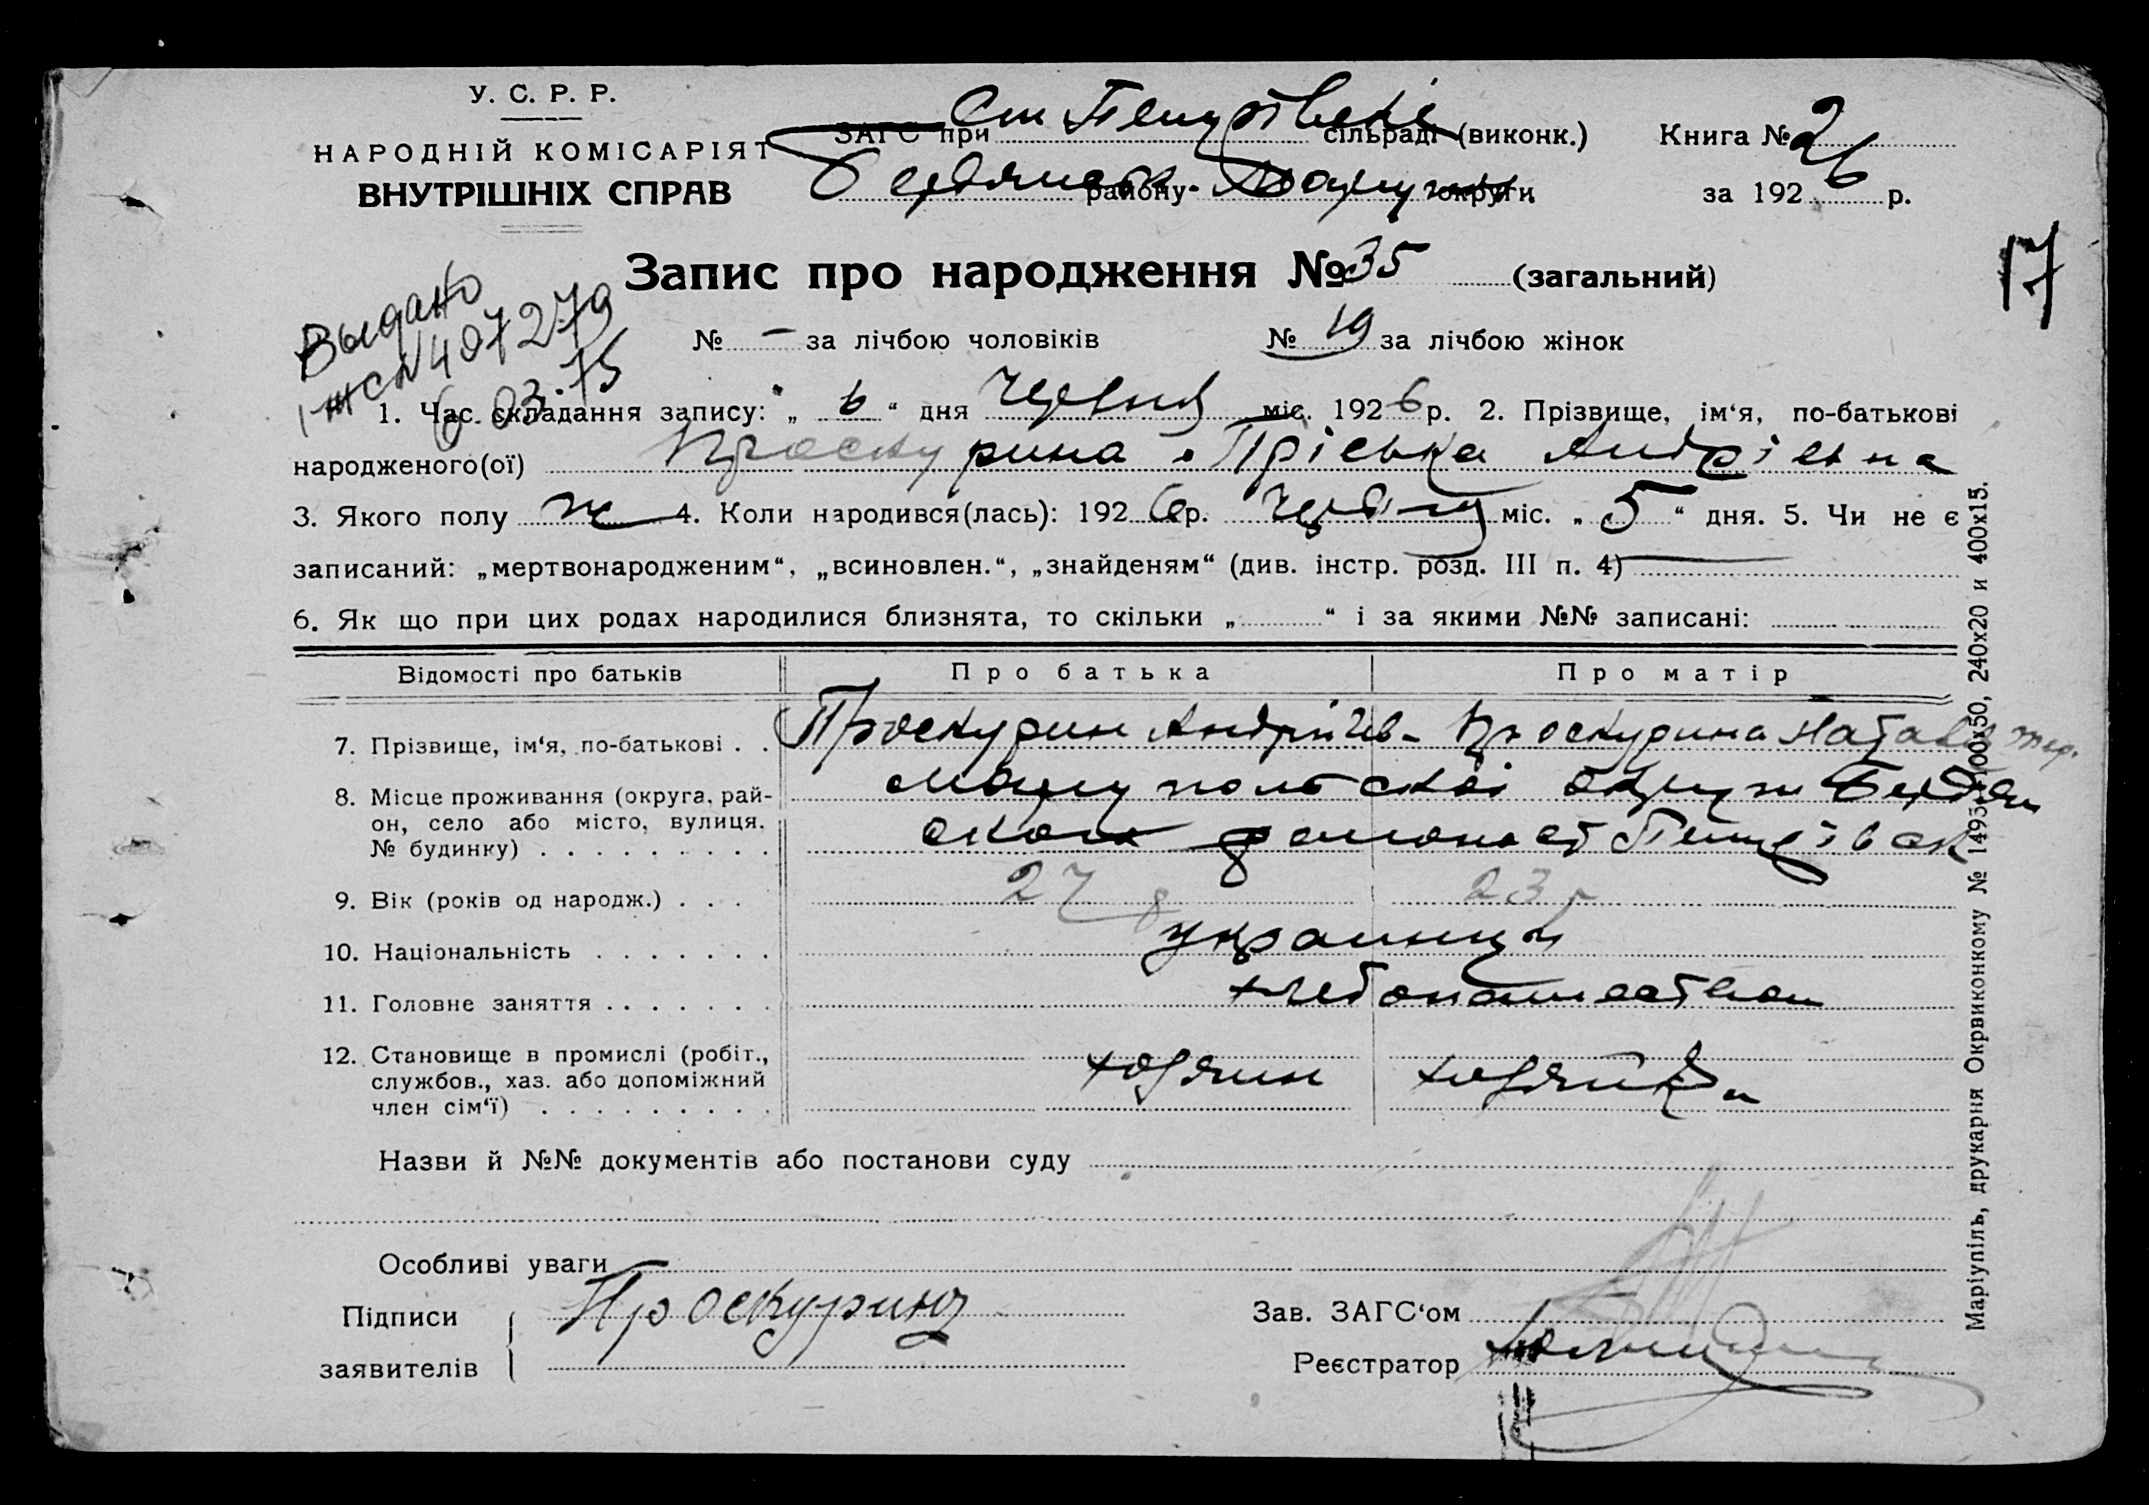 У. С. Р. Р.
НАРОДНІЙ КОМІСАРІЯТ
ВНУТРІШНІХ СПРАВ
ЗАГС при сільраді (виконк.)
району округи
Книга № 2
за 1926 р.
17
Запис про народження № 35 (загальний)
Выдано
№ 407279
6 03.75
№ — за лічбою чоловіків № 19 за лічбою жінок
1. Час складання запису: „ 6 “ дня Червня міс. 1926 р. 2. Прізвище, ім‘я, по-батькові
народженого(ої) Проскурина Пріська Андріевна
3. Якого полу ж 4. Коли народився(лась): 1926 р. Червня міс. „ 5 “ дня. 5. Чи не є
записаний: „мертвонародженим“, „всиновлен.“, „знайденям“ (див. інстр. розд. III п. 4)
6. Як що при цих родах народилися близнята, то скільки „ “ і за якими №№ записані:
Відомості про батьків Про батька Про матір
7. Прізвище, ім‘я, по-батькові . . Проскурин Андрій Ив- Проскурина Натал
8. Місце проживання (округа, рай-
он, село або місто, вулиця,
№ будинку) . . . . . . . . .
Мариупольскоі округи Бердян
ского района
9. Вік (років од народж.) . . . 27 23
10. Національність . . . . . . . украинцы
11. Головне заняття . . . . . . . хлебопашеством
12. Становище в промислі (робіт.,
службов., хаз. або допоміжний
член сім‘ї) . . . . . . . . .
хозяин хозяйка
Назви й №№ документів або постанови суду
Особливі уваги
Підписи
заявителів
Проскурин
Зав. ЗАГС‘ом
Реєстратор
Маріупіль, друкарня Окрвиконкому № 1495—100х50, 240х20 и 400х15.